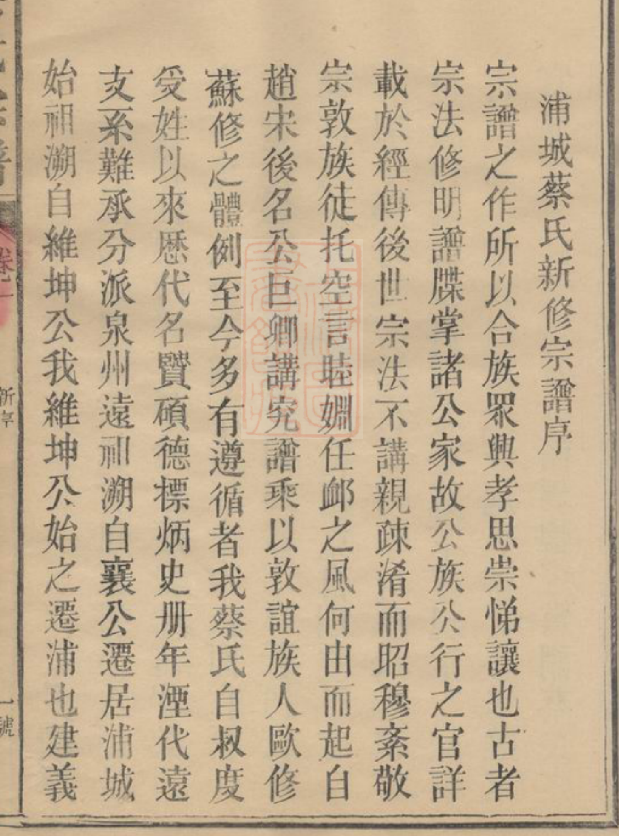 浦城蔡氏新修宗譜序
宗譜之作所以合族眾興孝思崇悌讓也古者
宗法修明譜牒掌諸公家故公族公行之官詳
載於經傳後世宗法不講親疎淆而昭穆紊敬
宗敦族徒托空言睦婣任卹之風何由而起自
趙宋後名公巨卿講究譜乘以敦誼族人歐修
蘇修之體例至今多有遵循者我蔡氏自叔度
受姓以來歷代名賢碩德標炳史册年湮代遠
支系難承分派泉州遠祖溯自襄公遷居浦城
始祖溯自維坤公我維坤公始之遷浦也建義
卷一
新序
一號